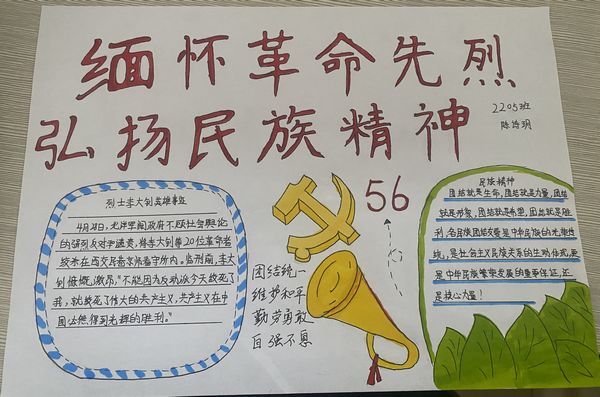 缅怀革命先烈
弘扬民族精神
2205班
陈诗玥
烈士李大钊英雄事迹
4月28日,北洋军阀政府不顾社会舆论
的强烈反对和谴责,将李大钊等20位革命者
绞杀在西交民巷京师看守所内。临刑前,李大
钊慷慨激昂:“不能因为反动派今天绞死了
我,就绞死了伟大的共产主义,共产主义在中
国必然得到光辉的胜利。”
56
团结统一
维护和平
勤劳勇敢
自强不息
民族精神
团结就是生命,团结就是力量,团结
就是形象,团结就是希望,团结就是胜
利。各民族团结奋是中华民族的光荣传
统,是社会主义民族关系的生动体现,更
是中华民族繁荣发展的重要保证,还
是核心力量!